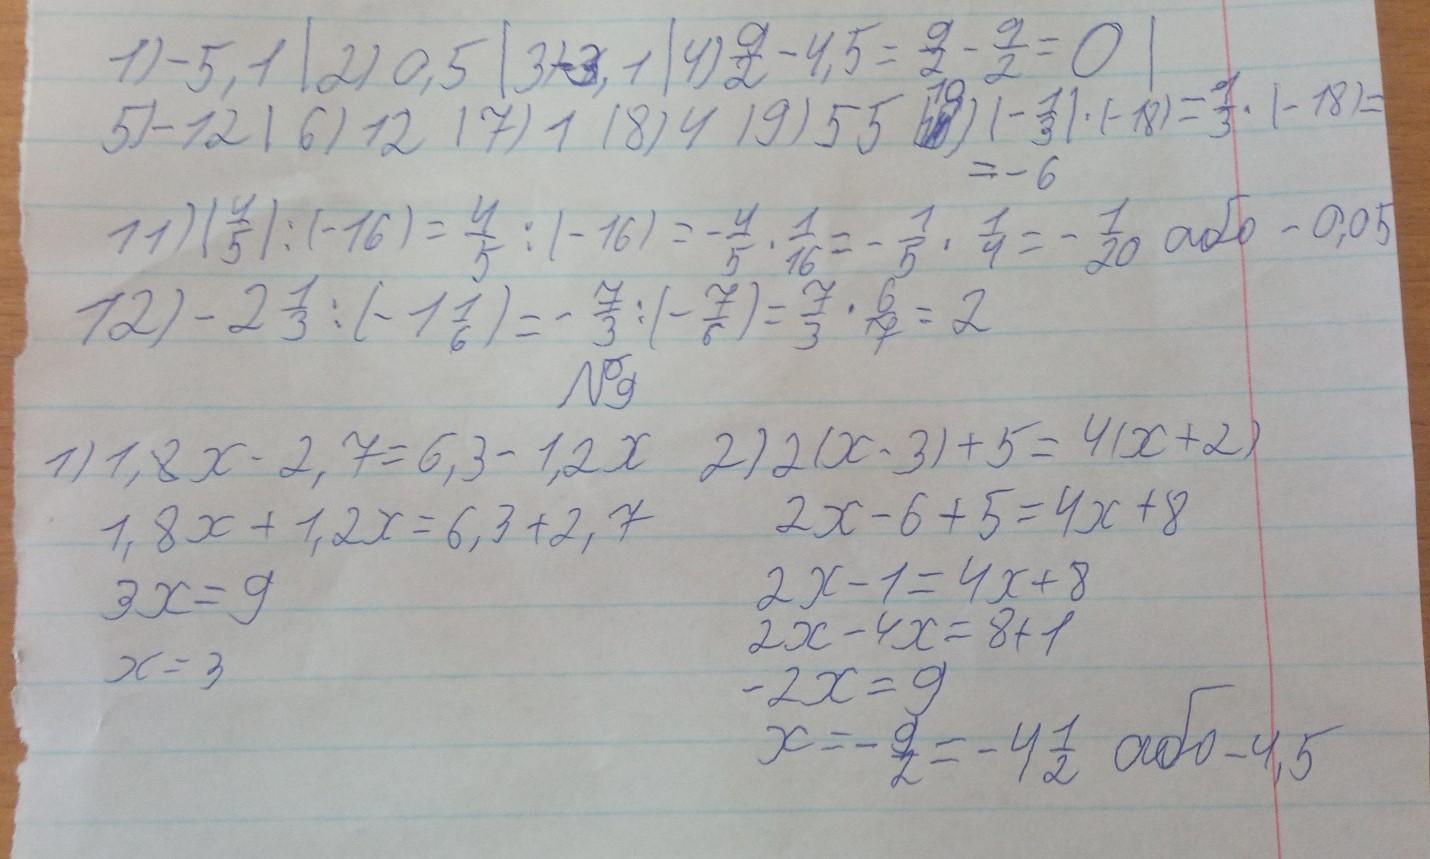 1) -5,1 | 2) 0,5 | 3) -3,1 | 4) 9/2 - 4,5 = 9/2 - 9/2 = 0 |
5) -12 | 6) 12 | 7) 1 | 8) 4 | 9) 55 | 10) |-1/3| · (-18) = 1/3 · (-18) =
= -6
11) |4/5| : (-16) = 4/5 : (-16) = -4/5 · 1/16 = -1/5 · 1/4 = -1/20 або -0,05
12) -2 1/3 : (-1 1/6) = -7/3 : (-7/6) = 7/3 · 6/7 = 2
№9
1) 1,8x - 2,7 = 6,3 - 1,2x
1,8x + 1,2x = 6,3 + 2,7
3x = 9
x = 3
2) 2(x - 3) + 5 = 4(x + 2)
2x - 6 + 5 = 4x + 8
2x - 1 = 4x + 8
2x - 4x = 8 + 1
-2x = 9
x = -9/2 = -4 1/2 або -4,5